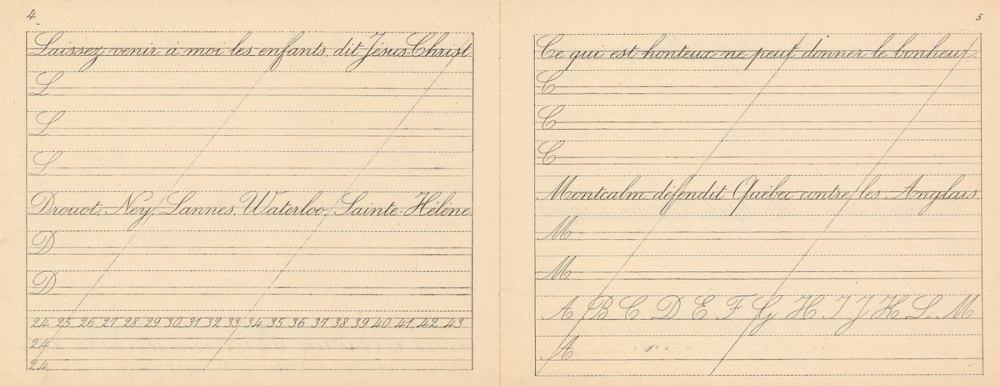 4
Laissez venir à moi les enfants, dit Jésus-Christ.
L
L
L
Drouot, Ney, Lannes, Waterloo, Sainte-Hélène
D
D
24 25 26 27 28 29 30 31 32 33 34 35 36 37 38 39 40 41 42 43
24
24
5
Ce qui est honteux ne peut donner le bonheur.
C
C
C
Montcalm défendit Québec contre les Anglais.
M
M
A B C D E F G H I J K L M
A